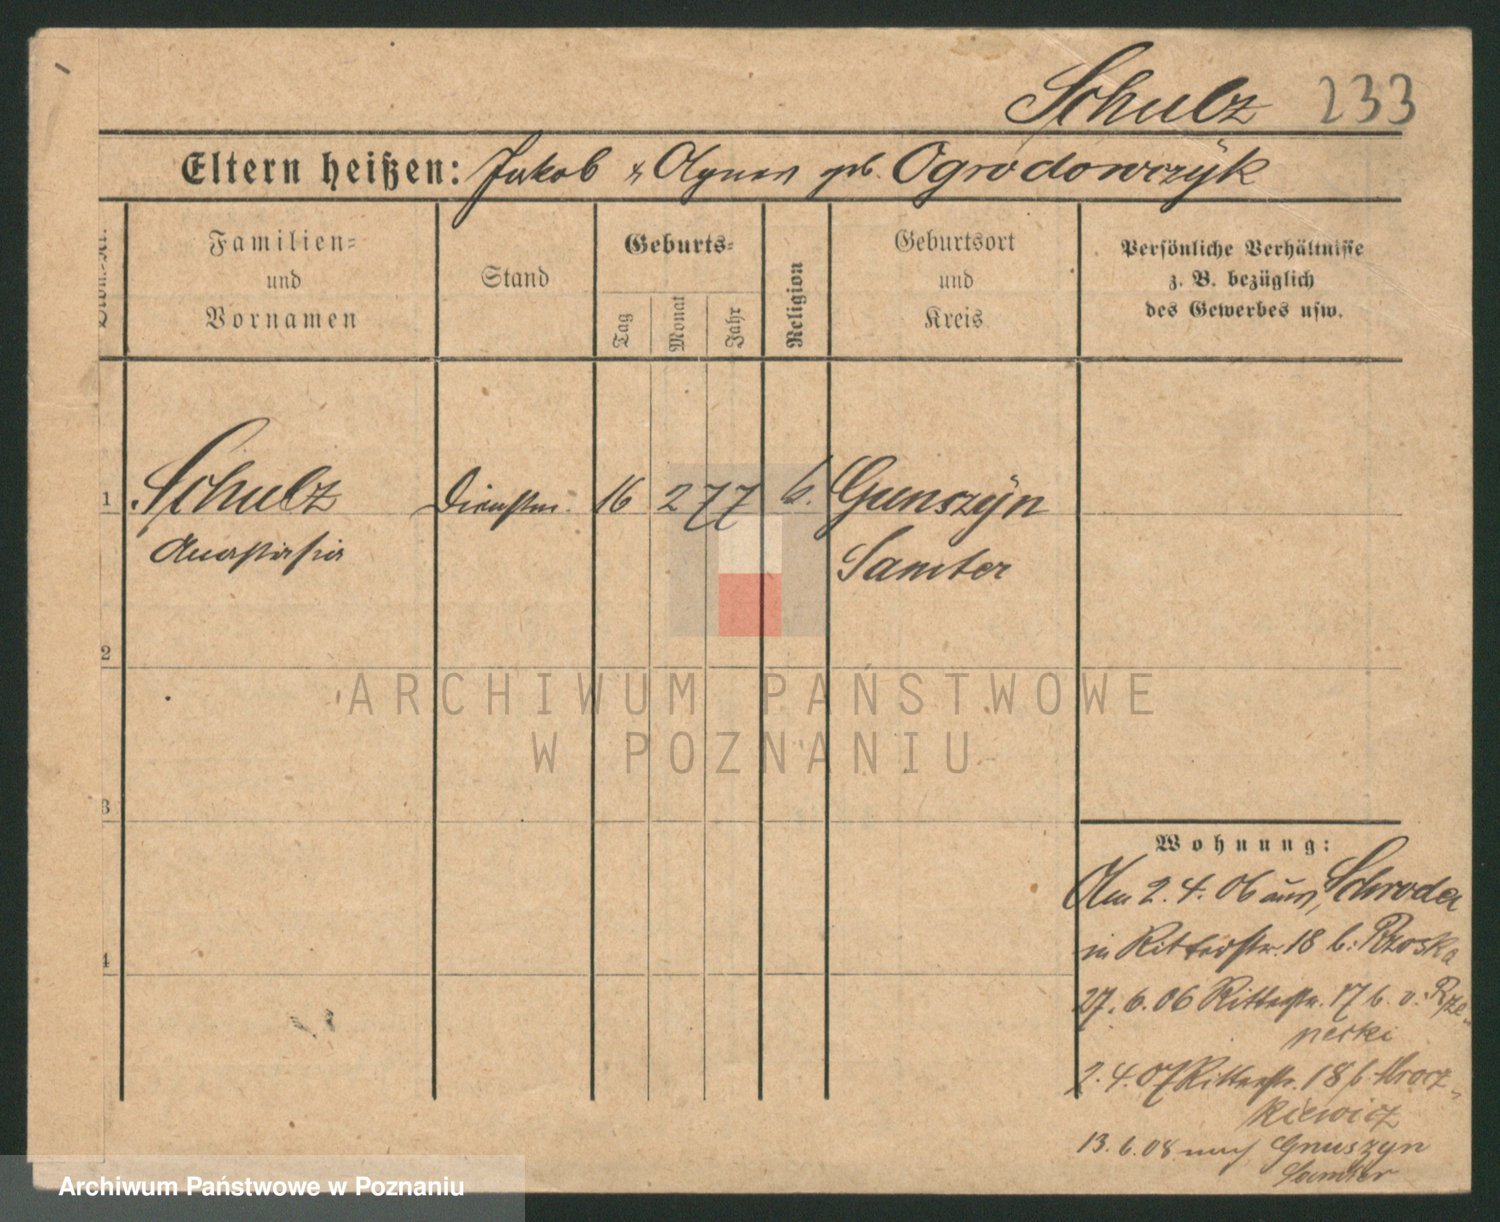 Schulz 233
Eltern heißen: Jakob & Agnes geb. Ogrodowczÿk
Familien=
und
Vornamen
Stand
Geburts=
Tag
Monat
Jahr
Religion
Geburtsort
und
Kreis
Persönliche Verhältnisse
z. B. bezüglich
des Gewerbes usw.
1 Schulz Dienstm. 16 2 77 k. Gunszÿn
Anastasia Samter
2
3
4
Wohnung:
Am 2. 4. 06 aus, Schroda
in Ritterstr. 18 b. Rzoska
27. 6. 06 Ritterstr. 17 b. v. Rze-
pecki
2. 4. 07 Ritterstr. 18 b.
kiewicz
13. 6. 08 nach Gnuszyn
Samter
ARCHIWUM PAŃSTWOWE
W POZNANIU
Archiwum Państwowe w Poznaniu